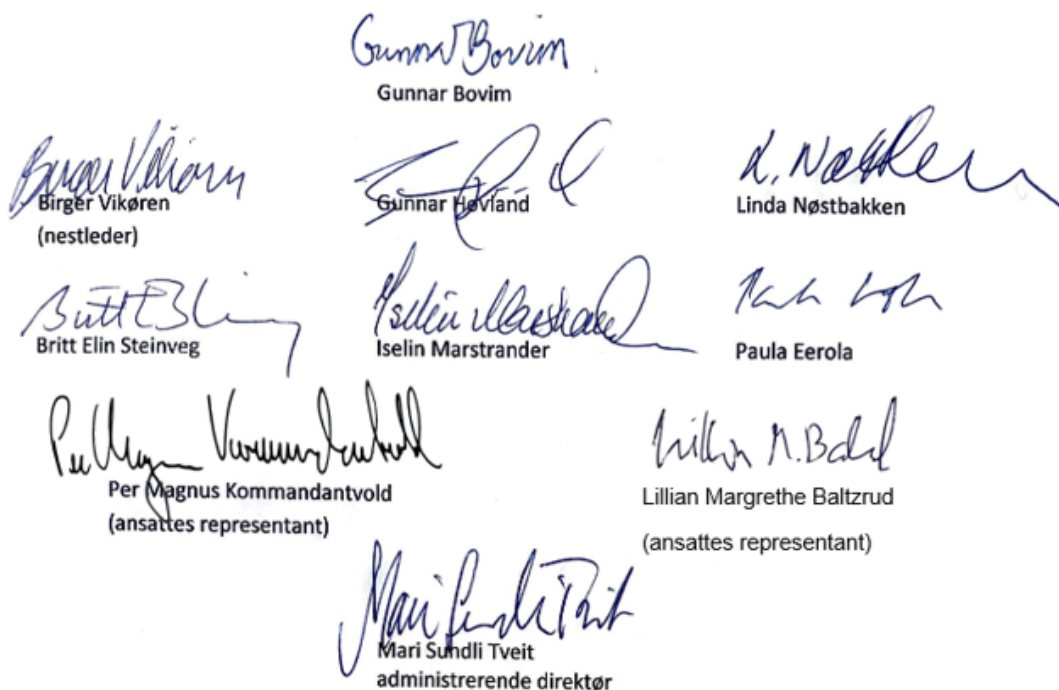 Gunnar Bovim
Gunnar Bovim
Birger Vikøren
Gunnar Hovland
L. Nøstbakken
Linda Nøstbakken
(nestleder)
Britt Elin Steinveg
Iselin Marstrander
Iselin Marstrander
Paula Eerola
Per Magnus Kommandantvold
Per Magnus Kommandantvold
(ansattes representant)
Lillian M. Baltzrud
Lillian Margrethe Baltzrud
(ansattes representant)
Mari Sundli Tveit
Mari Sundli Tveit
administrerende direktør